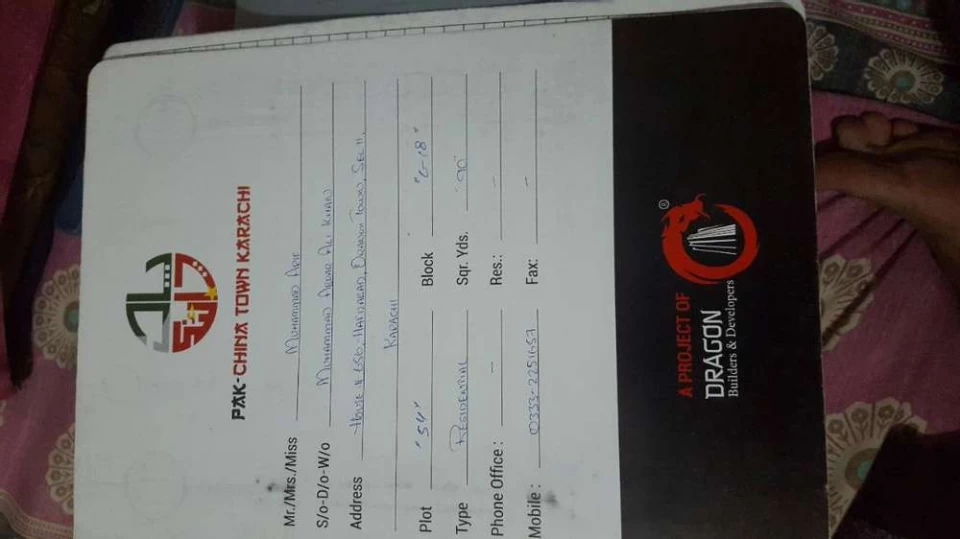 PAK-CHINA TOWN KARACHI
Mr./Mrs./Miss Muhammad
S/o-D/o-W/o Muhammad Ali Khan
Address House # 656, Town, Sec 11,
Karachi
Plot "54" Block "C-18"
Type Residential Sqr. Yds. "90"
Phone Office : – Res.: –
Mobile : 0333-2251657 Fax: –
A PROJECT OF
DRAGON ®
Builders & Developers